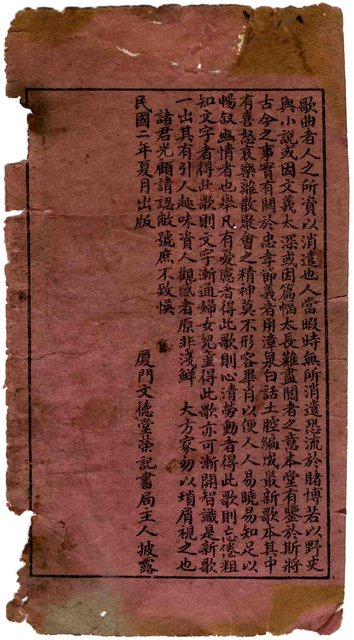 歌曲者人之所資以消遣也人當暇時無所消遣恐流於賭博若以野史
與小說或因文義太深或因篇幅太長難盡閱者之意本堂有鑒於斯將
古今之事實有關於忠孝節義者用漳泉白話土腔編成最新歌本其中
有喜怒哀樂離散聚會之精神莫不形容畢肖以便人人易曉易知足以
暢叙幽情者也舉凡有憂慮者得此歌則心清勞動者得此歌則忘倦粗
知文字者得此歌則文字漸通婦女兒童得此歌亦可漸開智識是新歌
一出其有引人趣味資人觀感者原非淺鮮 大方家勿以瑣屑視之也
諸君光顧請認敝號庶不致悞
民國二年夏月出版 厦門文德堂榮記書局主人披露